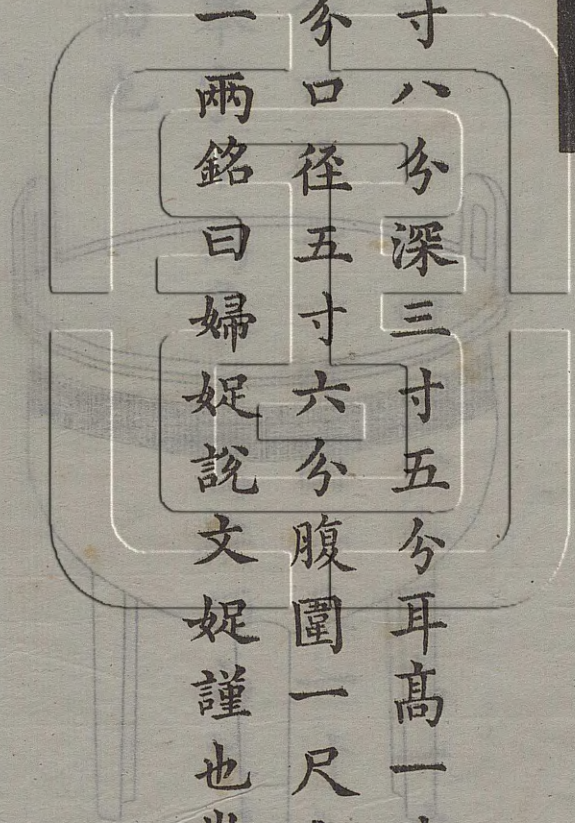 寸八分深三寸五分耳髙一
分口径五寸六分腹圍一尺
一兩銘曰婦娖說文娖謹也